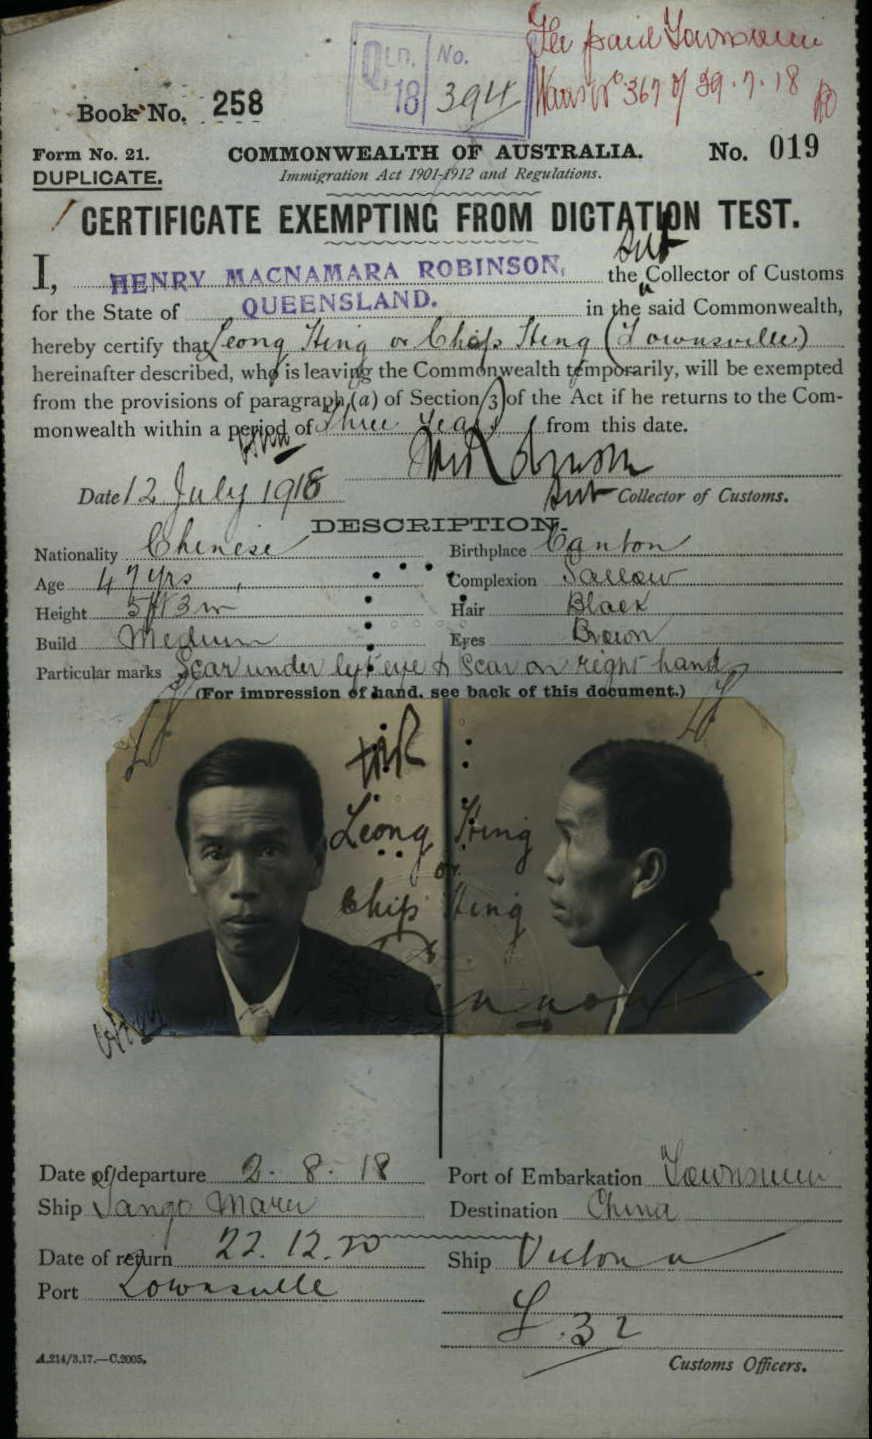 Fee paid Townsville
QLD. No.
18 394
No 367 of 29.7.18
Book No. 258
Form No. 21.
COMMONWEALTH OF AUSTRALIA.
No. 019
DUPLICATE.
Immigration Act 1901-1912 and Regulations.
CERTIFICATE EXEMPTING FROM DICTATION TEST.
Sub
I, HENRY MACNAMARA ROBINSON, the Collector of Customs
for the State of QUEENSLAND. in the said Commonwealth,
hereby certify that Leong Hing or Chip Hing (Townsville)
hereinafter described, who is leaving the Commonwealth temporarily, will be exempted
from the provisions of paragraph (a) of Section 3 of the Act if he returns to the Com-
monwealth within a period of Three Years from this date.
Date 12 July 1918
Sub Collector of Customs.
DESCRIPTION.
Nationality Chinese Birthplace Canton
Age 47 yrs Complexion Sallow
Height 5ft 3in Hair Black
Build Medium Eyes Brown
Particular marks Scar under left eye & Scar on right hand
(For impression of hand, see back of this document.)
HMR
Leong Hing
or
Chip Hing
Date of departure 2. 8. 18 Port of Embarkation Townsville
Ship Tango Maru Destination China
Date of return 22. 12. 20 Ship Victoria
Port Townsville
32
A.214/3.17.—C.2005.
Customs Officers.